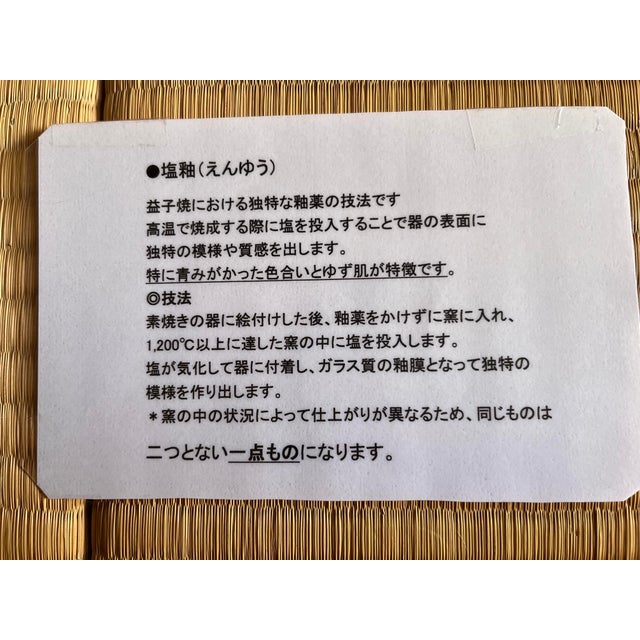 ●塩釉(えんゆう)
益子焼における独特な釉薬の技法です
高温で焼成する際に塩を投入することで器の表面に
独特の模様や質感を出します。
特に青みがかった色合いとゆず肌が特徴です。
◎技法
素焼きの器に絵付けした後、釉薬をかけずに窯に入れ、
1,200℃以上に達した窯の中に塩を投入します。
塩が気化して器に付着し、ガラス質の釉膜となって独特の
模様を作り出します。
＊窯の中の状況によって仕上がりが異なるため、同じものは
二つとない一点ものになります。